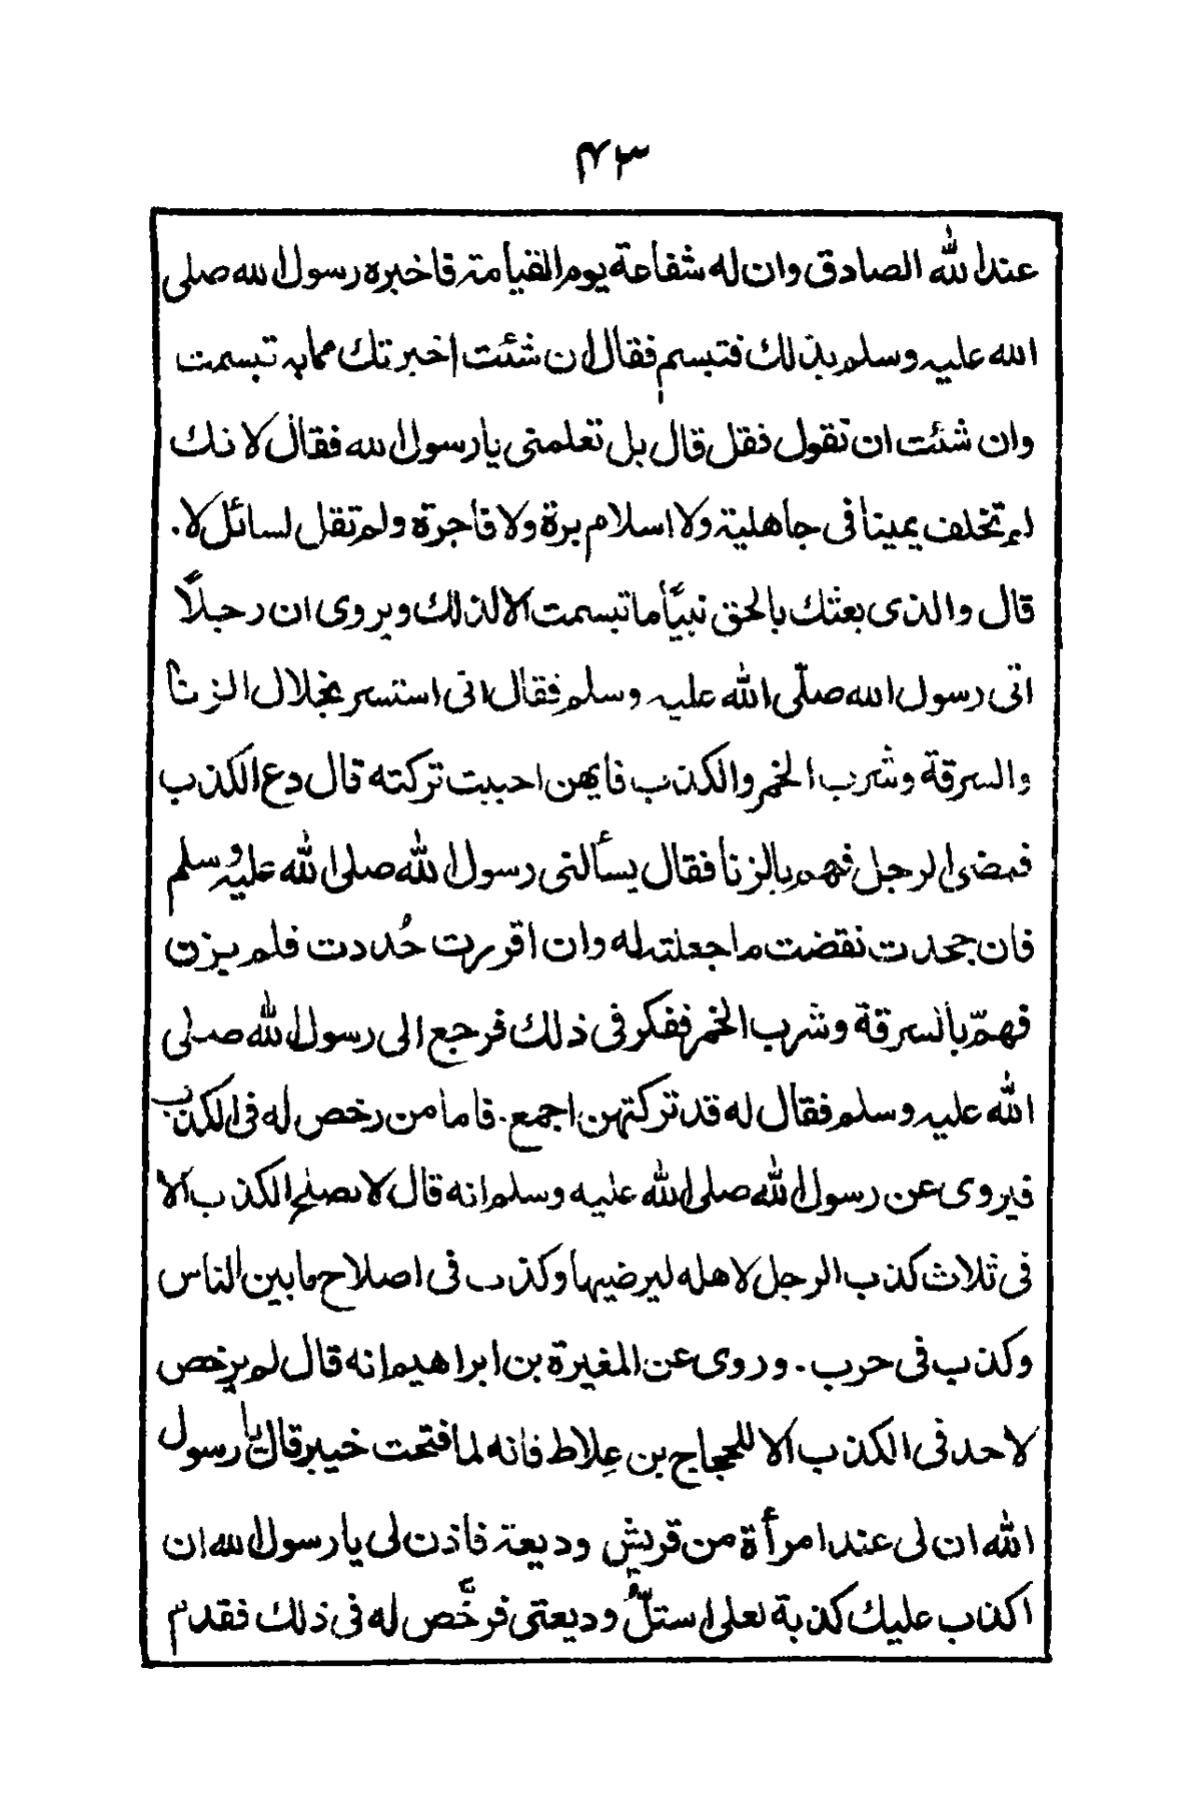 ۴۳
عند الله الصادق وان له شفاعة يوم القيامة فاخبره رسول الله صلى
الله عليه وسلم بذلك فتبسم فقال ان شئت اخبرتك ممابه تبسمت
وان شئت ان تقول فقل قال بل تعلمنى يا رسول الله فقال لانك
لم تخلف يمينا فى جاهلية ولا اسلام برة ولا فاجرة ولم تقل لسائل لا.
قال والذى بعثك بالحق نبيًّا ما تبسمت الا لذلك ويروى ان رجلاً
اتى رسول الله صلّى الله عليه وسلم فقال انى استسر بخلال الزنا
والسرقة وشرب الخمر والكذب فايهن احببت تركته قال دع الكذب
فمضى الرجل فهم بالزنا فقال يسألنى رسول الله صلى الله عليه وسلم
فان جحدت نقضت ما جعلته له وان اقررت حُددت فلم يزن
فهمّ بالسرقة وشرب الخمر ففكر فى ذلك فرجع الى رسول الله صلى
الله عليه وسلم فقال له قد تركتهن اجمع. فاما من رخص له فى الكذب
فيروى عن رسول الله صلى الله عليه وسلم انه قال لا يصلح الكذب الا
فى ثلاث كذب الرجل لاهله ليرضيها وكذب فى اصلاح ما بين الناس
وكذب فى حرب. وروى عن المغيرة بن ابراهيم انه قال لم يرخص
لاحد فى الكذب الا للحجاج بن عِلاط فانه لما فتحت خيبر قال يا رسول
الله ان لى عند امرأة من قريش وديعة فاذن لى يا رسول الله ان
اكذب عليك كذبة لعلى استلّ وديعتى فرخَّص له فى ذلك فقدم